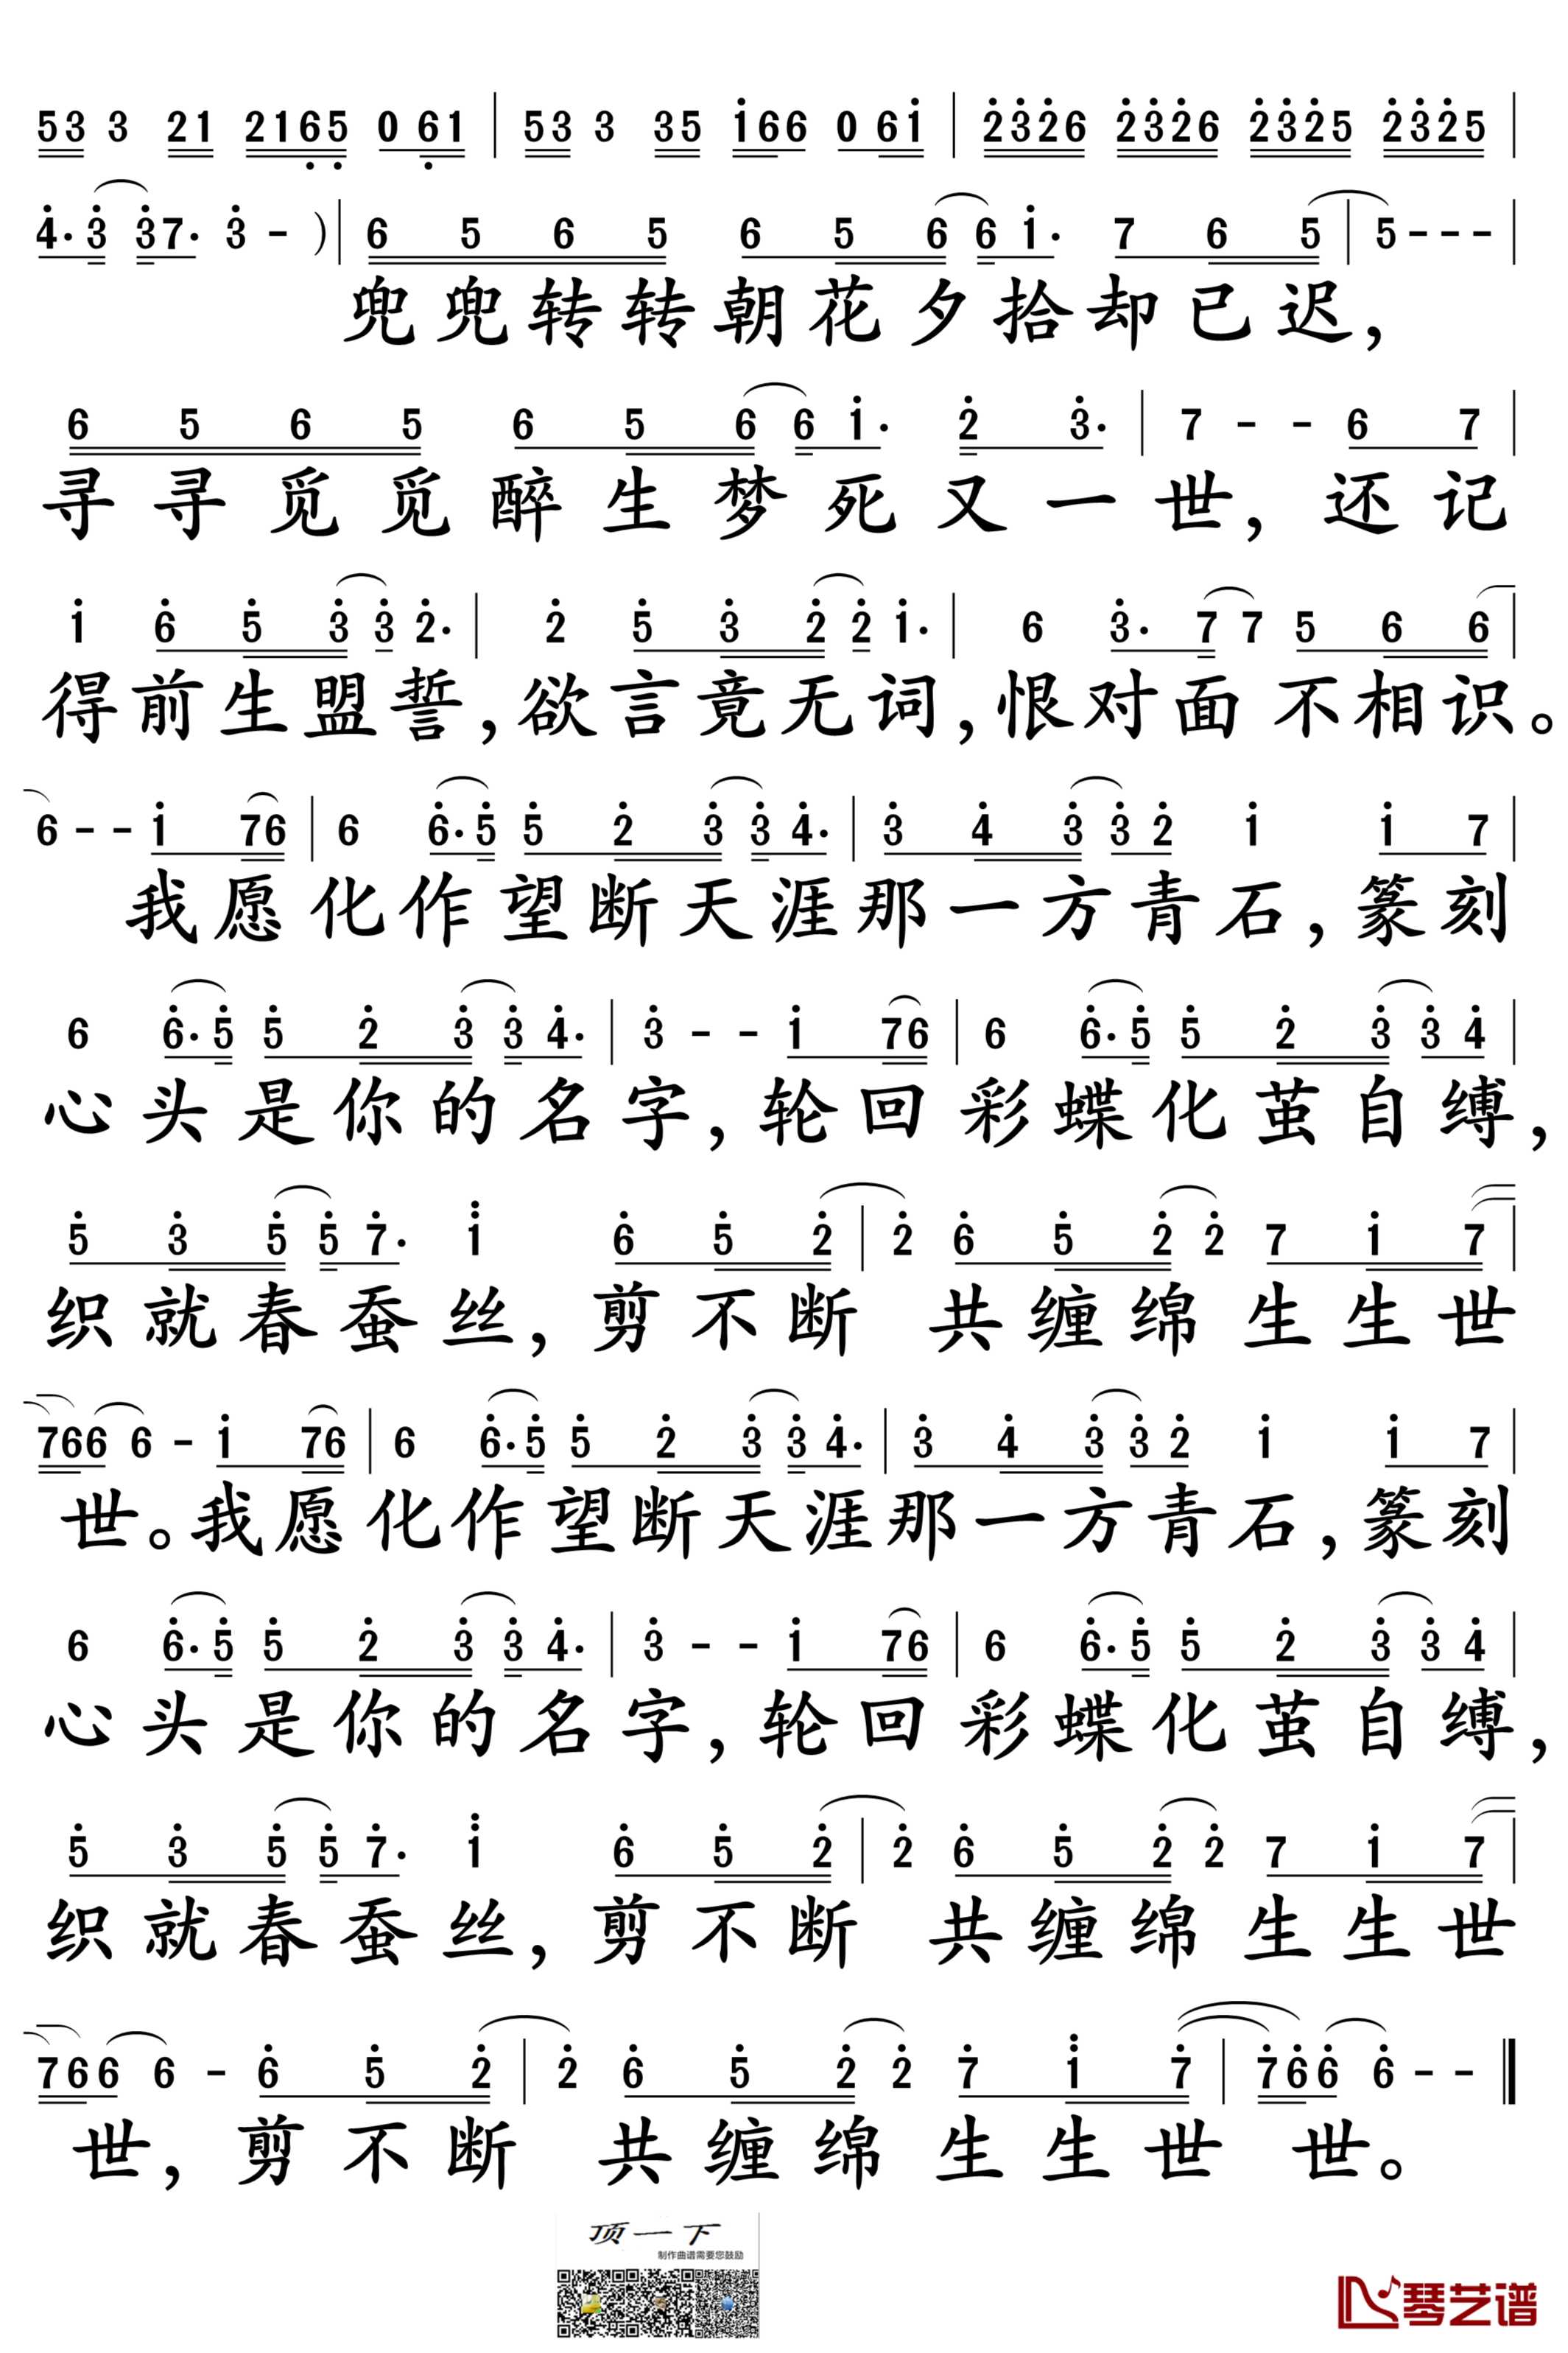 53 3 21 2165 0 61 | 53 3 35 i66 0 6i | 2326 2326 2325 2325 |
4·3 37· 3 - ) | 6 5 6 5 6 5 6 6 i· 7 6 5 | 5 - - - |
兜兜转转朝花夕拾却已迟，
6 5 6 5 6 5 6 6 i· 2 3· | 7 - - 6 7 |
寻寻觅觅醉生梦死又一世，还记
i 6 5 3 3 2· | 2 5 3 2 2 i· | 6 3· 7 7 5 6 6 |
得前生盟誓，欲言竟无词，恨对面不相识。
6 - - i 76 | 6 6·5 5 2 3 3 4· | 3 4 3 3 2 i i 7 |
我愿化作望断天涯那一方青石，篆刻
6 6·5 5 2 3 3 4· | 3 - - i 76 | 6 6·5 5 2 3 3 4 |
心头是你的名字，轮回彩蝶化茧自缚，
5 3 5 5 7· i 6 5 2 | 2 6 5 2 2 7 i 7 |
织就春蚕丝，剪不断 共缠绵生生世
766 6 - i 76 | 6 6·5 5 2 3 3 4· | 3 4 3 3 2 i i 7 |
世。我愿化作望断天涯那一方青石，篆刻
6 6·5 5 2 3 3 4· | 3 - - i 76 | 6 6·5 5 2 3 3 4 |
心头是你的名字，轮回彩蝶化茧自缚，
5 3 5 5 7· i 6 5 2 | 2 6 5 2 2 7 i 7 |
织就春蚕丝，剪不断 共缠绵生生世
766 6 - 6 5 2 | 2 6 5 2 2 7 i 7 | 766 6 - - ‖
世，剪不断 共缠绵生生世世。
顶一下
制作曲谱需要您鼓励
琴艺谱